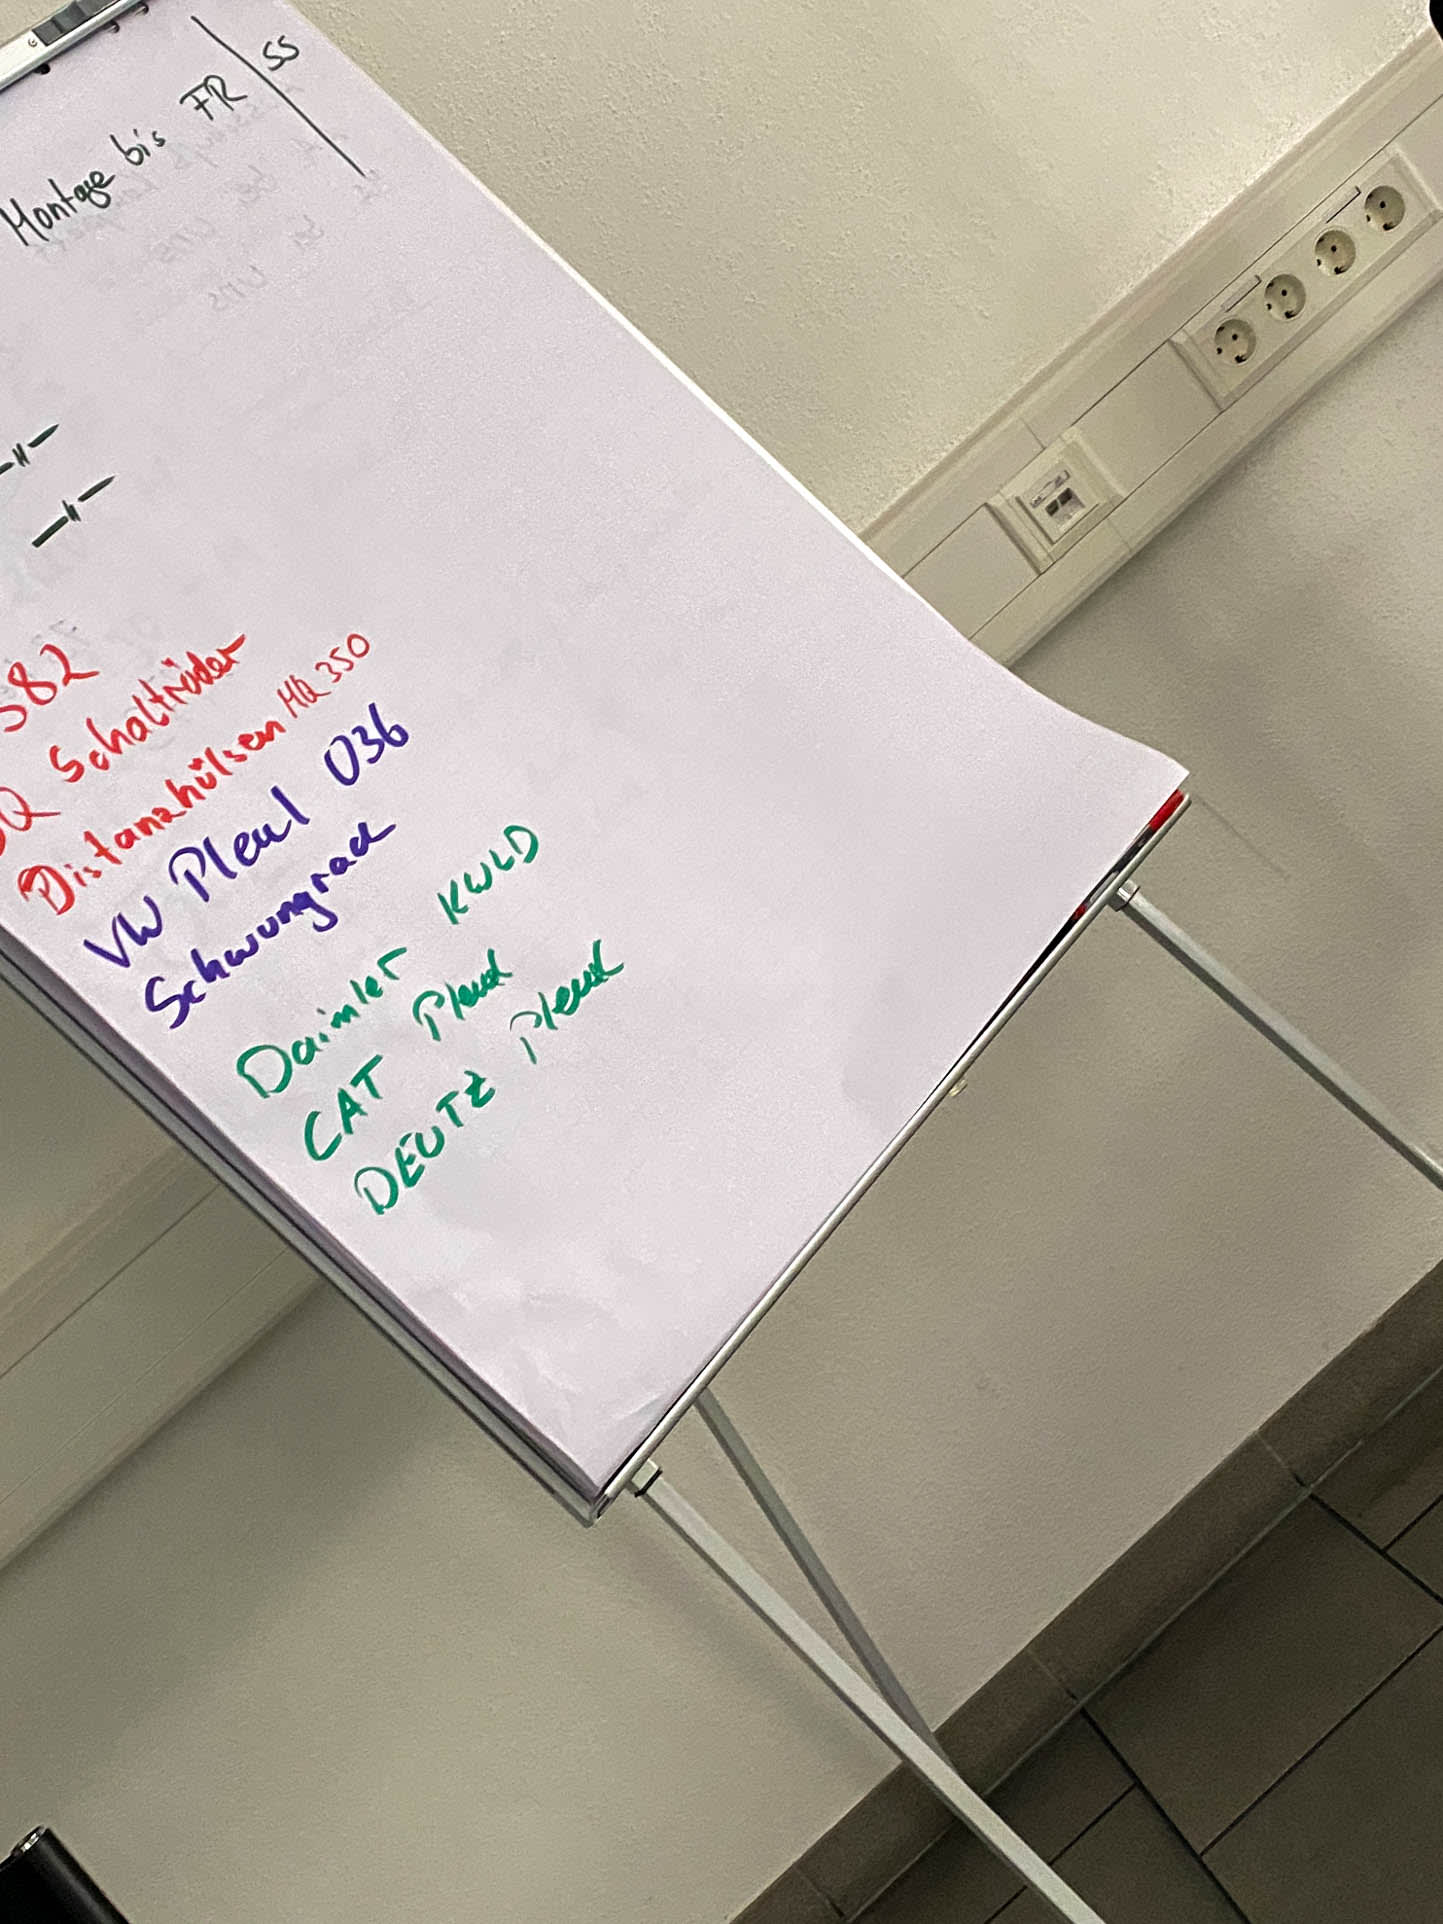 Montage bis FR | SS
—"—
—"—
382
Q Schalträder
Distanzhülsen MQ 350
VW Pleul 036
Schwungrad
Daimler KWLD
CAT Pleul
DEUTZ Pleul